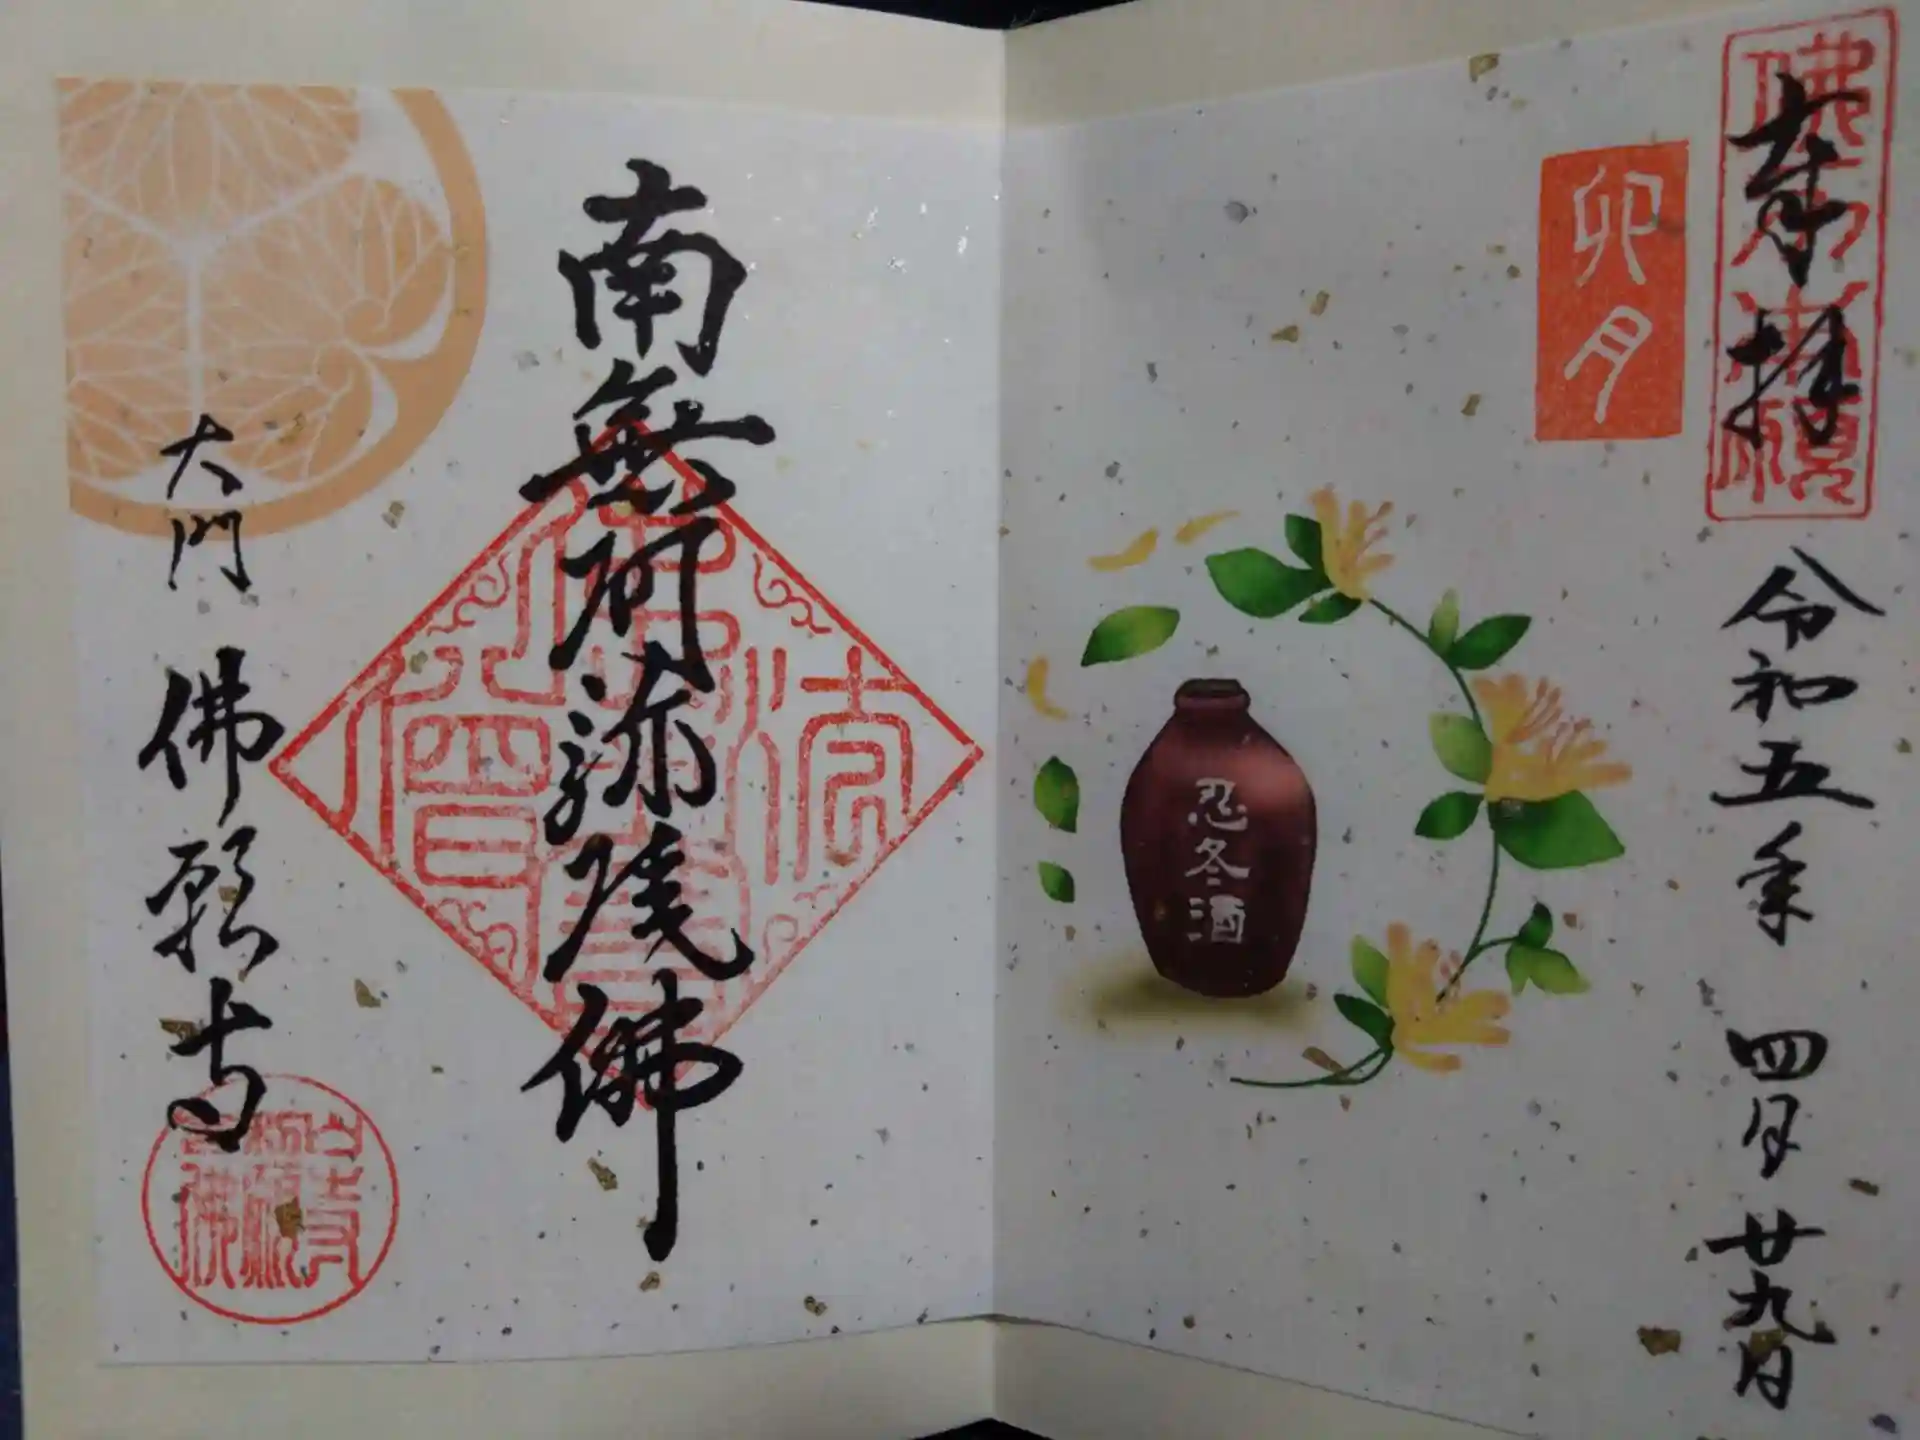 奉拝
卯月
令和五年 四月 廿九日
忍冬酒
南無阿弥陀佛
佛法僧寳
大門 佛願寺